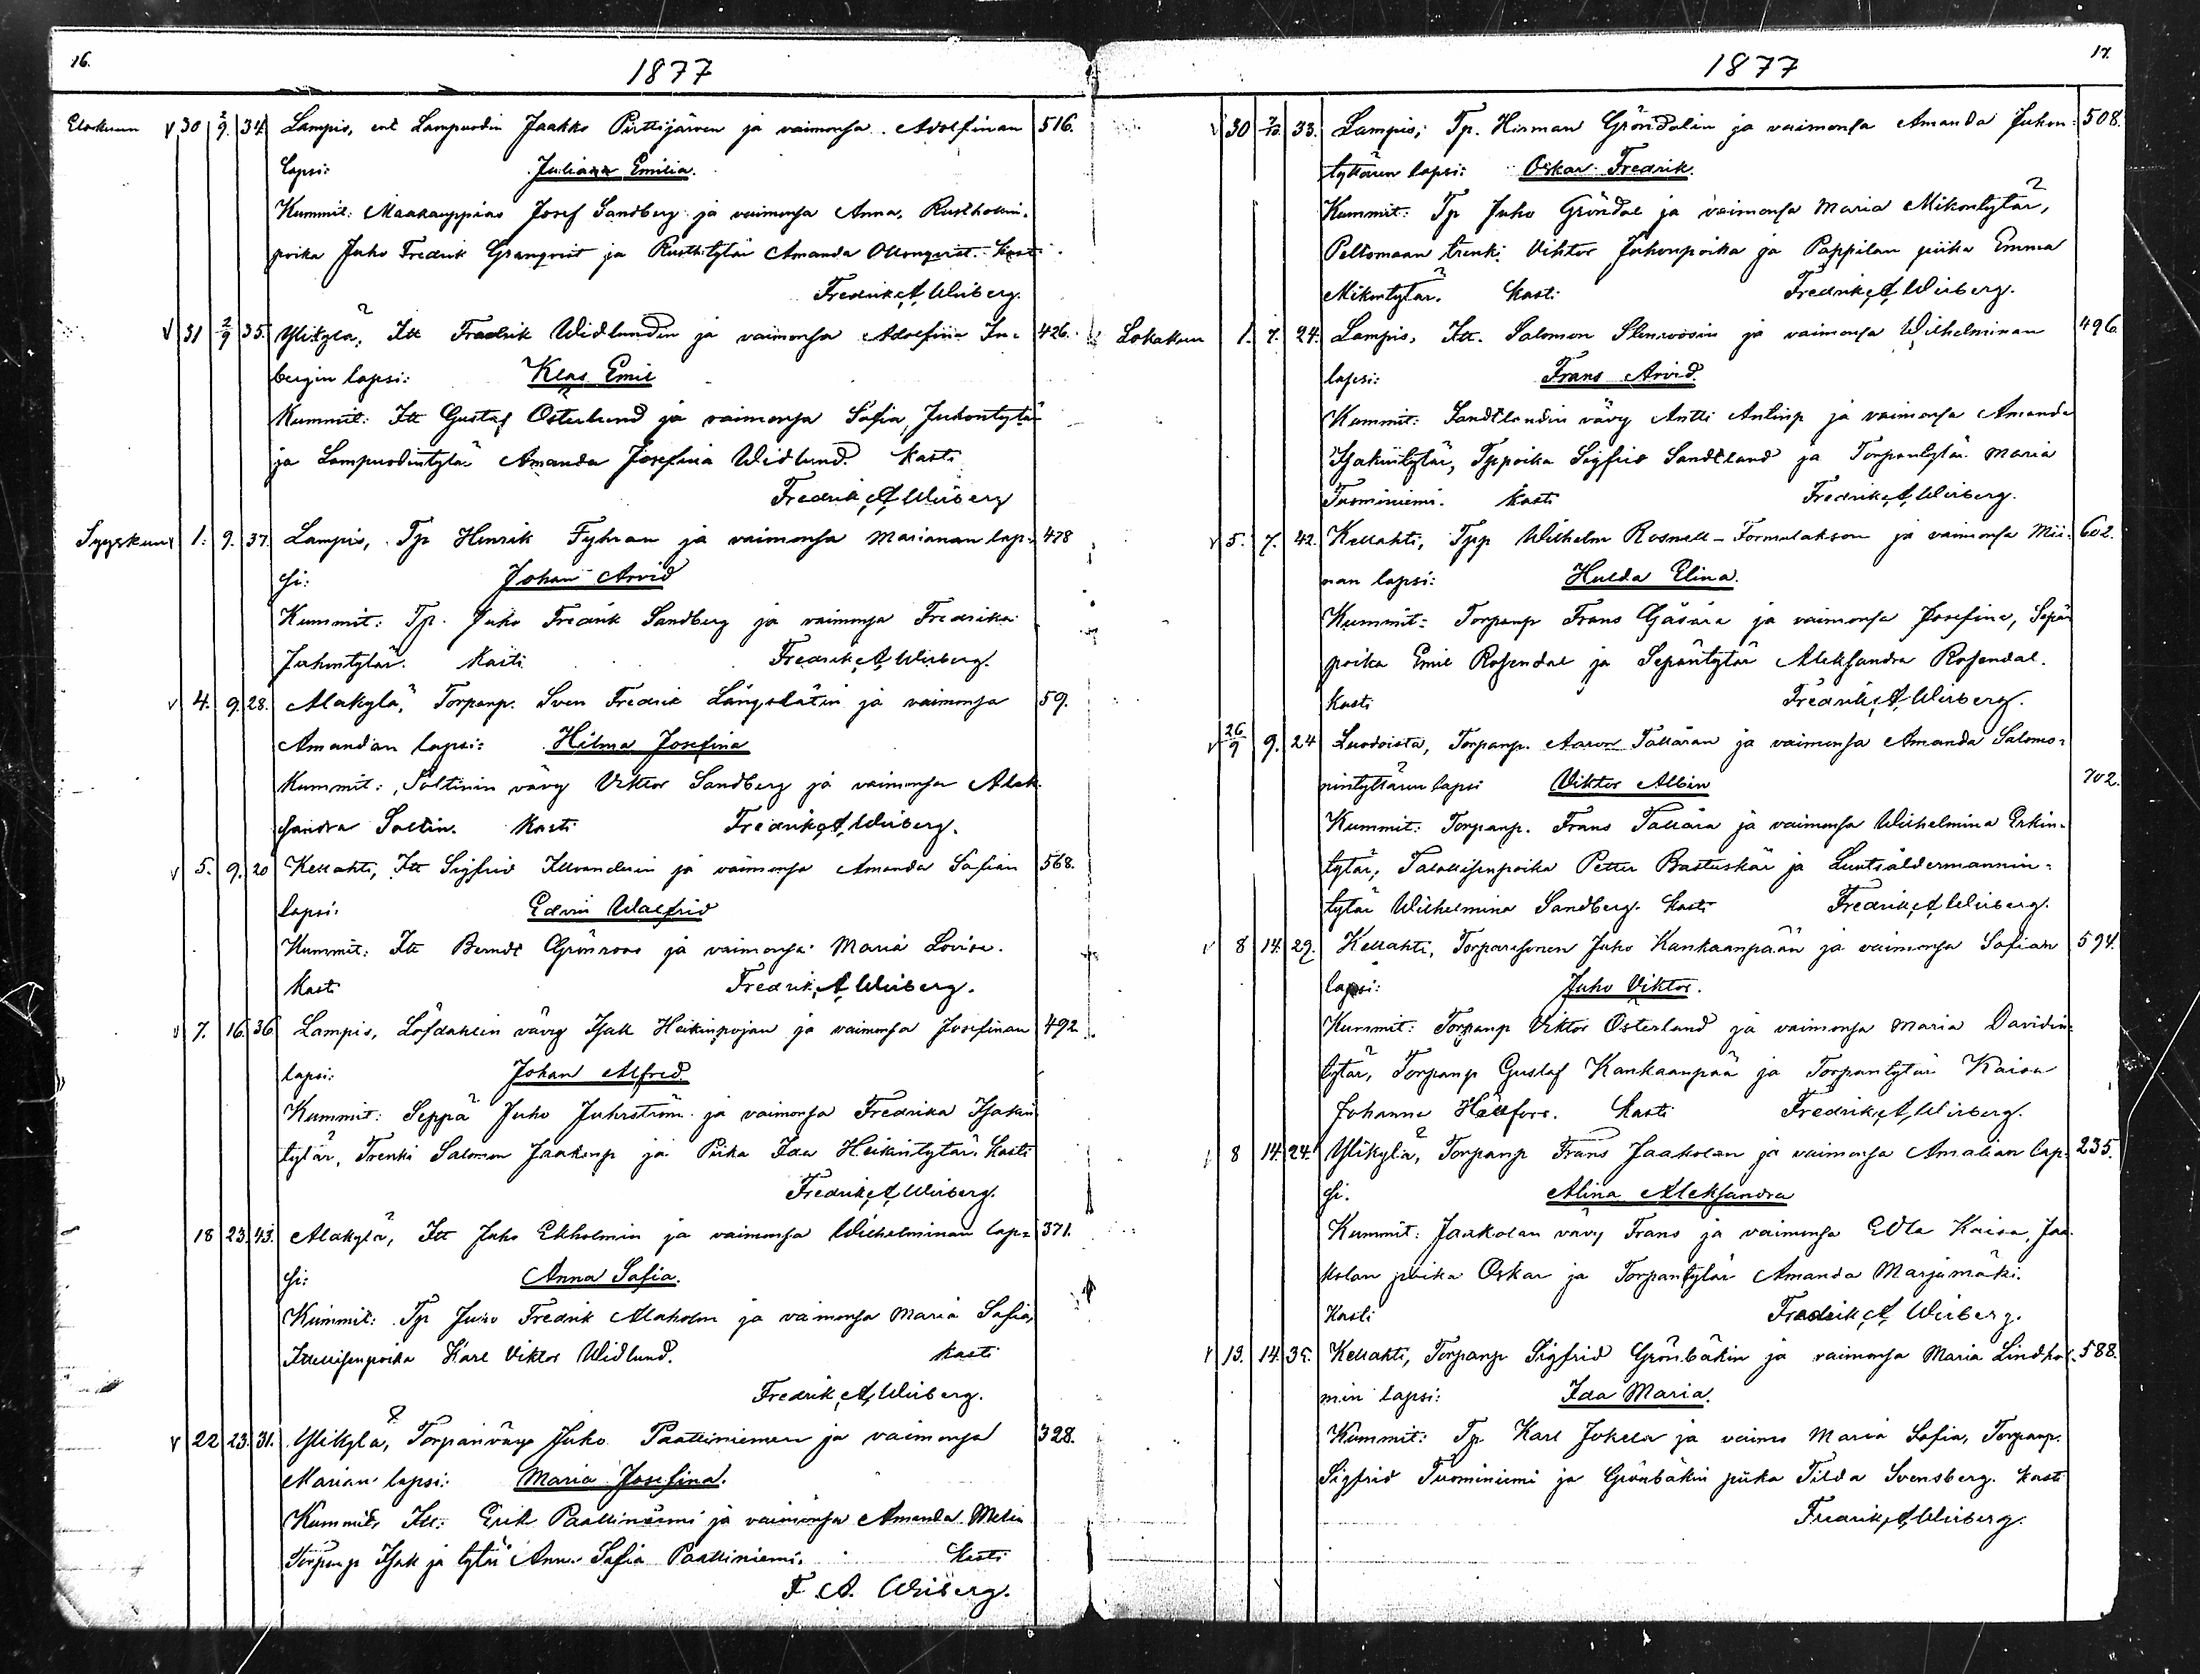 16.
1877
Elokuun v 30 2/9. 34. Lampis, ent Lampuodin Jaakko Pirttijärven ja vaimonsa Adolfinan 516.
lapsi: Juliana Emilia.
Kummit: Maakauppias Josef Sandberg ja vaimonsa Anna, Rusthollin-
poika Juho Fredrik Granqvist ja Rusthtytär Amanda Ollonqvist. Kasti
Fredrik A Wiberg.
v 31 2/9 35. Ylikylä, Itt Fredrik Widlundin ja vaimonsa Adolfiina In- 426.
bergin lapsi: Klas Emil
Kummit: Itt Gustaf Österlund ja vaimonsa Sofia, Juhontytär
ja Lampuodintytär Amanda Josefina Widlund. Kasti
Fredrik A Wiberg
Syyskuun 1. 9. 37. Lampis, Tp Henrik Fyhran ja vaimonsa Marianan lap- 478
si: Johan Arvid
Kummit: Tp. Juho Fredrik Sandberg ja vaimonsa Fredrika
Juhontytär. Kasti Fredrik A Wiberg.
v 4. 9. 28. Alakylä, Torpanp. Sven Fredrik Långslätin ja vaimonsa 59.
Amandan lapsi: Hilma Josefina
Kummit: Soltinin vävy Viktor Sandberg ja vaimonsa Alek-
sandra Soltin. Kasti Fredrik A Wiberg.
v 5. 9. 20 Kellahti, Itt Sigfrid Illvanderin ja vaimonsa Amanda Sofian 568.
lapsi: Edvin Walfrid
Kummit: Itt Berndt Grönroos ja vaimonsa Maria Lovisa.
Kasti Fredrik A Wiberg.
v 7. 16. 36 Lampis, Löfdahlin vävy Isak Heikinpojan ja vaimonsa Josefinan 492.
lapsi: Johan Alfred.
Kummit: Seppä Juho Juhrström ja vaimonsa Fredrika Isakin
tytär, Trenki Salomon Jaakonp ja Piika Ida Heikintytär. Kasti
Fredrik A Wiberg.
18 23. 43. Alakylä, Itt Juho Ekholmin ja vaimonsa Wilhelminan lap- 371.
si: Anna Sofia.
Kummit: Tp Juho Fredrik Alaholm ja vaimonsa Maria Sofia,
Itsellisenpoika Karl Viktor Widlund. Kasti
Fredrik A Wiberg.
v 22 23. 31. Ylikylä, Torpanvävyn Juho Paatteniemen ja vaimonsa 328.
Marian lapsi: Maria Josefina.
Kummit, Itt: Erik Paatliniemi ja vaimonsa Amanda
Torpanp Isak ja tytär Anna Sofia Paatliniemi. Kasti
F. A. Wiberg.
17.
1877
v 30 7/10. 33. Lampis; Tp. Hirman Gröndalin ja vaimonsa Amanda Juhon- 508.
tyttären lapsi: Oskar Fredrik.
Kummit: Tp Juho Gröndal ja vaimonsa Maria Mikontytär,
Peltomaan trenki Viktor Juhonpoika ja Pappilan piika Emma
Mikontytär. Kasti Fredrik A Wiberg.
Lokakuun 1. 7. 24. Lampis, Itt. Salomon Stenroosin ja vaimonsa Wilhelminan 496.
lapsi: Frans Arvid.
Kummit: Sandtlandin vävy Antti Antinp ja vaimonsa Amanda
Isakintytär, Tppoika Sigfrid Sandtland ja Torpantytär Maria
Tuominiemi. Kasti Fredrik A Wiberg.
v 5. 7. 42. Kellahti, Tpp Wilhelm Rosnell-Tormalakson ja vaimonsa Mii- 602.
nan lapsi: Hulda Elina.
Kummit: Torpanp Frans Gäsära ja vaimonsa Josefina, Sepän
poika Emil Rosendal ja Sepäntytär Aleksandra Rosendal.
Kasti Fredrik A Wiberg.
v 26/9 9. 24 Luodoista, Torpanp. Aaron Tallärän ja vaimonsa Amanda Salomo-
nintyttären lapsi Viktor Albin 702.
Kummit: Torpanp. Frans Tallärä ja vaimonsa Wilhelmina Erkin-
tytär, Talollisenpoika Petter Bastuskär ja Luotsåldermannin-
tytär Wilhelmina Sandberg. Kasti Fredrik A Wiberg.
v 8 14. 29. Kellahti, Torpanisännän Juho Kankaanpään ja vaimonsa Sofian 594.
lapsi: Juho Viktor.
Kummit: Torpanp Viktor Österlund ja vaimonsa Maria Davidin-
tytär, Torpanp Gustaf Kankaanpää ja Torpantytär Kaisa
Johanna Hällfors. Kasti Fredrik A Wiberg.
v 8 14. 24. Ylikylä, Torpanp Frans Jaakolan ja vaimonsa Amalian lap- 235.
si. Alina Aleksandra
Kummit: Jaakolan vävy Frans ja vaimonsa Edla Kaisa, Jaa-
kolan poika Oskar ja Torpantytär Amanda Marjamäki.
Kasti Fredrik A Wiberg.
v 13. 14. 35. Kellahti, Torpanp Sigfrid Grönbäkin ja vaimonsa Maria Lindhol- 588.
min lapsi: Ida Maria.
Kummit: Tp Karl Jokela ja vaimo Maria Sofia, Torpanp.
Sigfrid Tuominiemi ja Grönbäkin piika Tilda Svensberg. Kasti
Fredrik A Wiberg.